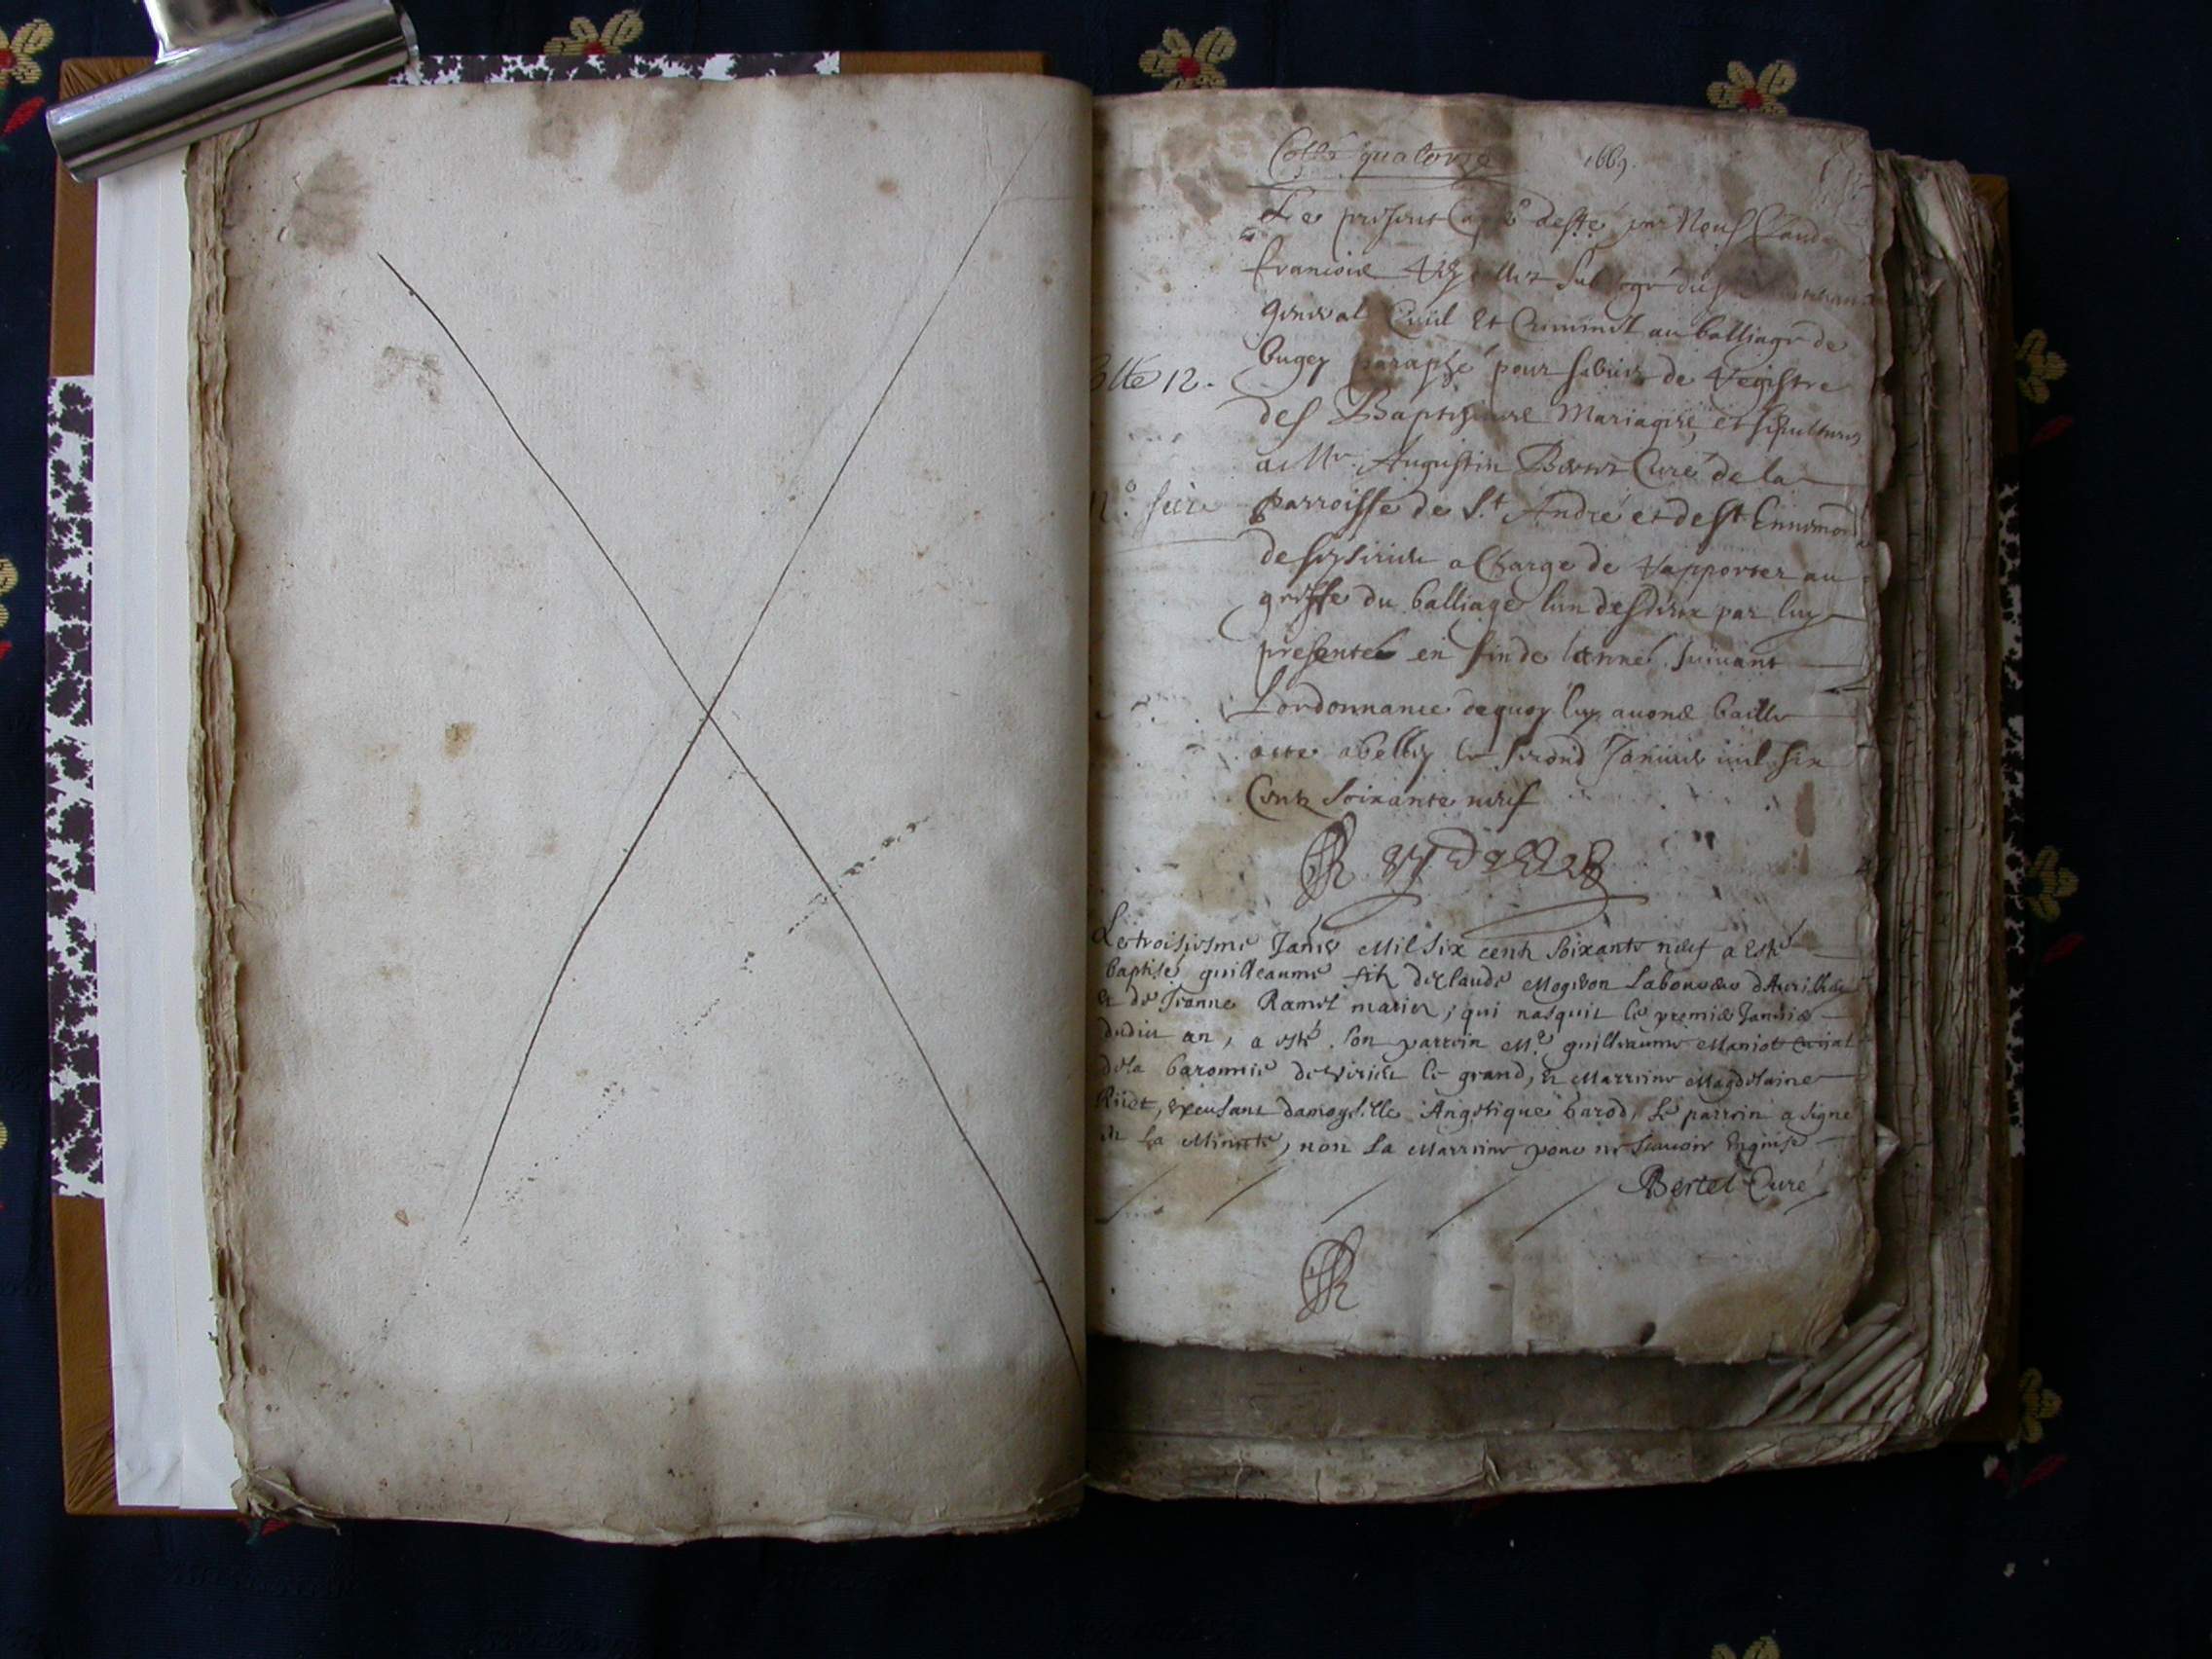 Cotté quatorze 1669.
Le present cayé
francois
general Civil Et Criminel au balliage de
bugey paraphé pour servir de Registre
des Baptesmes Mariages et sepultures
a Mre Augustin Bertet Curé de la
parroisse de S.t André et de St Ennemond
a Charge de Rapporter au
greffe du balliage lun desdeux par luy
presentes en fin de lannee suivant
Lordonnance dequoy luy avons baille
acte a belley le second Janvier mil six
Cents soixante neuf
Cotte 12.
Le troisiesme Janvr Mil six cents soixante neuf a esté
baptisé guilleaume fils de Claude Mogeon Laboureur
et de Jeanne Ramel mariez, qui nasquit le premier Janvier
dudit an, a esté son parrein Mre guilleaume
de la baronnie de le grand, et Marreine Magdelaine
damoyselle Angelique barod, Le parrein a signé
en La Minutte, non La Marreine pour ne scavoir Enquise
Bertet Curé